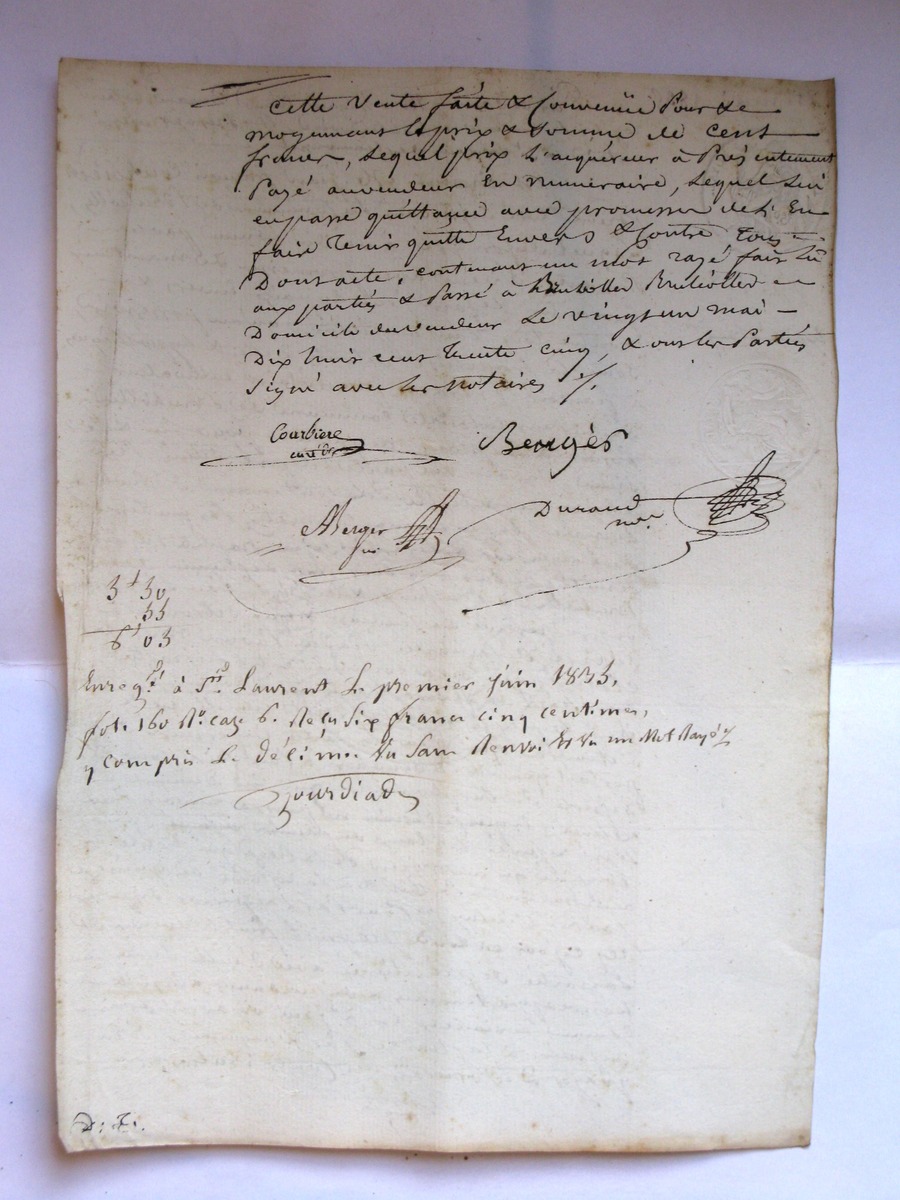 Cette Vente faite & Convenüe Pour &
moyennant le prix & Somme de cent
francs, Lequel prix L'acquéreur à Présentement
Payé auvendeur En numéraire, Lequel Lui
enpasse quittance avec promesse de L'En
faire Tenir quitte Envers & Contre tous
Dont acte, contenant un mot rayé fait Lû
aux parties & Passé à
Domicile duvendeur Le vingt un mai
Dix huit cent trente cinq, & ont les Parties
Signé avec les notaires /.
Courbiere
Bergès
ABerger
Durand
nre
3f 30
33
6f 03
Enregré à St Laurent Le premier juin 1835,
fol. 160 Ro. caze 6. Reçu Six francs cinq centimes,
y compris Le décime. Vu Sans Renvoi Et Vu un Mot Rayé
Jourdiade